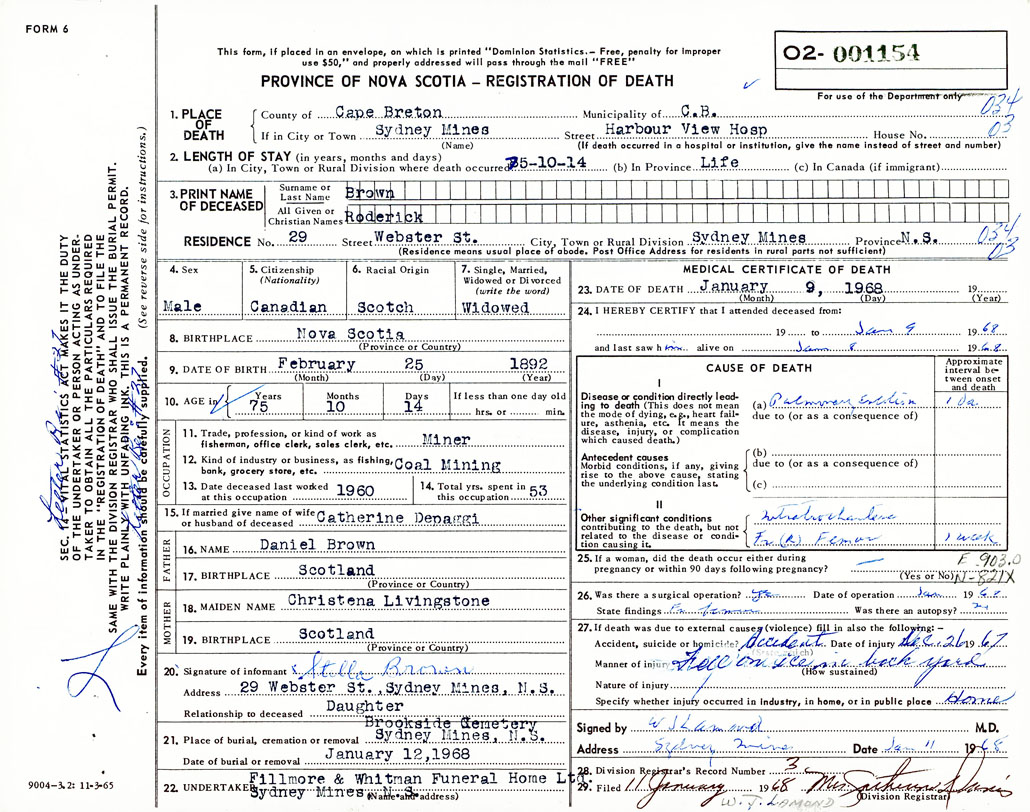 FORM 6
This form, if placed in an envelope, on which is printed "Dominion Statistics.— Free, penalty for improper
use $50," and properly addressed will pass through the mail "FREE"
O2- 001154
PROVINCE OF NOVA SCOTIA – REGISTRATION OF DEATH
For use of the Department only
034
03
1. PLACE OF DEATH { County of Cape Breton Municipality of C.B.
If in City or Town Sydney Mines Street Harbour View Hosp House No.
(Name) (If death occurred in a hospital or institution, give the name instead of street and number)
2. LENGTH OF STAY (in years, months and days)
(a) In City, Town or Rural Division where death occurred 75-10-14 (b) In Province Life (c) In Canada (if immigrant)
3. PRINT NAME OF DECEASED
Surname or Last Name Brown
All Given or Christian Names Roderick
RESIDENCE No. 29 Street Webster St. City, Town or Rural Division Sydney Mines Province N.S.
(Residence means usual place of abode. Post Office Address for residents in rural parts not sufficient)
034
03
4. Sex
Male
5. Citizenship
(Nationality)
Canadian
6. Racial Origin
Scotch
7. Single, Married,
Widowed or Divorced
(write the word)
Widowed
8. BIRTHPLACE Nova Scotia
(Province or Country)
9. DATE OF BIRTH February 25 1892
(Month) (Day) (Year)
10. AGE in Years Months Days If less than one day old
75 10 14 hrs. or min.
OCCUPATION
11. Trade, profession, or kind of work as
fisherman, office clerk, sales clerk, etc. Miner
12. Kind of industry or business, as fishing,
bank, grocery store, etc. Coal Mining
13. Date deceased last worked
at this occupation 1960
14. Total yrs. spent in
this occupation 53
15. If married give name of wife
or husband of deceased Catherine Depaggi
FATHER
16. NAME Daniel Brown
17. BIRTHPLACE Scotland
(Province or Country)
MOTHER
18. MAIDEN NAME Christena Livingstone
19. BIRTHPLACE Scotland
(Province or Country)
20. Signature of informant Stella Brown
Address 29 Webster St., Sydney Mines, N.S.
Relationship to deceased Daughter
Brookside Cemetery
21. Place of burial, cremation or removal Sydney Mines, N.S.
Date of burial or removal January 12, 1968
Fillmore & Whitman Funeral Home Ltd.
22. UNDERTAKER Sydney Mines, N.S.
(Name and address)
MEDICAL CERTIFICATE OF DEATH
23. DATE OF DEATH January 9, 1968 19
(Month) (Day) (Year)
24. I HEREBY CERTIFY that I attended deceased from:
19 to Jan 9 1968
and last saw him alive on Jan 8 1968
CAUSE OF DEATH
Approximate
interval be-
tween onset
and death
I
Disease or condition directly lead-
ing to death (This does not mean
the mode of dying, e.g., heart fail-
ure, asthenia, etc. It means the
disease, injury, or complication
which caused death.)
(a) Pulmonary Embolism 1 Da.
due to (or as a consequence of)
Antecedent causes
Morbid conditions, if any, giving
rise to the above cause, stating
the underlying condition last.
(b)
due to (or as a consequence of)
(c)
II
Other significant conditions
contributing to the death, but not
related to the disease or condi-
tion causing it.
Fr. (R) Femur 1 week
25. If a woman, did the death occur either during
pregnancy or within 90 days following pregnancy?
(Yes or No)
E 903.0
N-821X
26. Was there a surgical operation? Yes Date of operation Jan 1968
State findings Fr. femur Was there an autopsy? no
27. If death was due to external causes (violence) fill in also the following:–
Accident, suicide or homicide? Accident Date of injury Dec. 26 1967
Manner of injury Fell on ice in back yard
(How sustained)
Nature of injury
Specify whether injury occurred in industry, in home, or in public place Home
Signed by W J Lamond M.D.
Address Sydney Mines Date Jan 11 1968
28. Division Registrar's Record Number 3
29. Filed 11 January 1968 Mrs.
(Division Registrar)
W. J. LAMOND
SEC. 14 VITAL STATISTICS ACT MAKES IT THE DUTY
OF THE UNDERTAKER OR PERSON ACTING AS UNDER-
TAKER TO OBTAIN ALL THE PARTICULARS REQUIRED
IN THE "REGISTRATION OF DEATH" AND TO FILE THE
SAME WITH THE DIVISION REGISTRAR WHO SHALL ISSUE THE BURIAL PERMIT.
WRITE PLAINLY WITH UNFADING INK. THIS IS A PERMANENT RECORD.
Every item of information should be carefully supplied. (See reverse side for instructions.)
9004–3.2: 11-3-65